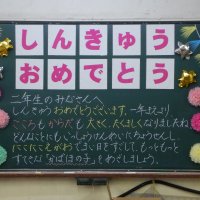 しんきゅう
おめでとう
二年生のみなさんへ
しんきゅうおめでとうございます。一年生より
こころもからだも大きく、たくましくなりましたね
どんなことにもいっしょうけんめいにちょうせんし
にこにこえがおですごし、もっともっと
すてきな「かばほの子」をめざしましょう。